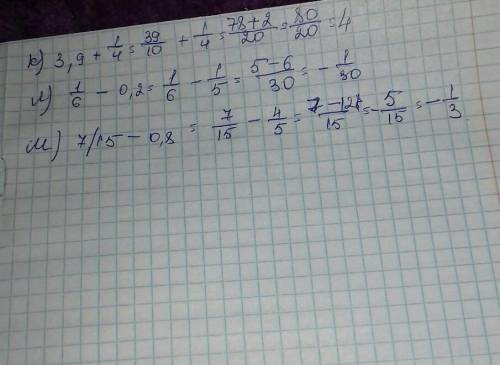 к) 3,9 + 1/4 = 39/10 + 1/4 = 78+2/20 = 80/20 = 4
л) 1/6 - 0,2 = 1/6 - 1/5 = 5-6/30 = - 1/30
м) 7/15 - 0,8 = 7/15 - 4/5 = 7-12/15 = - 5/15 = - 1/3